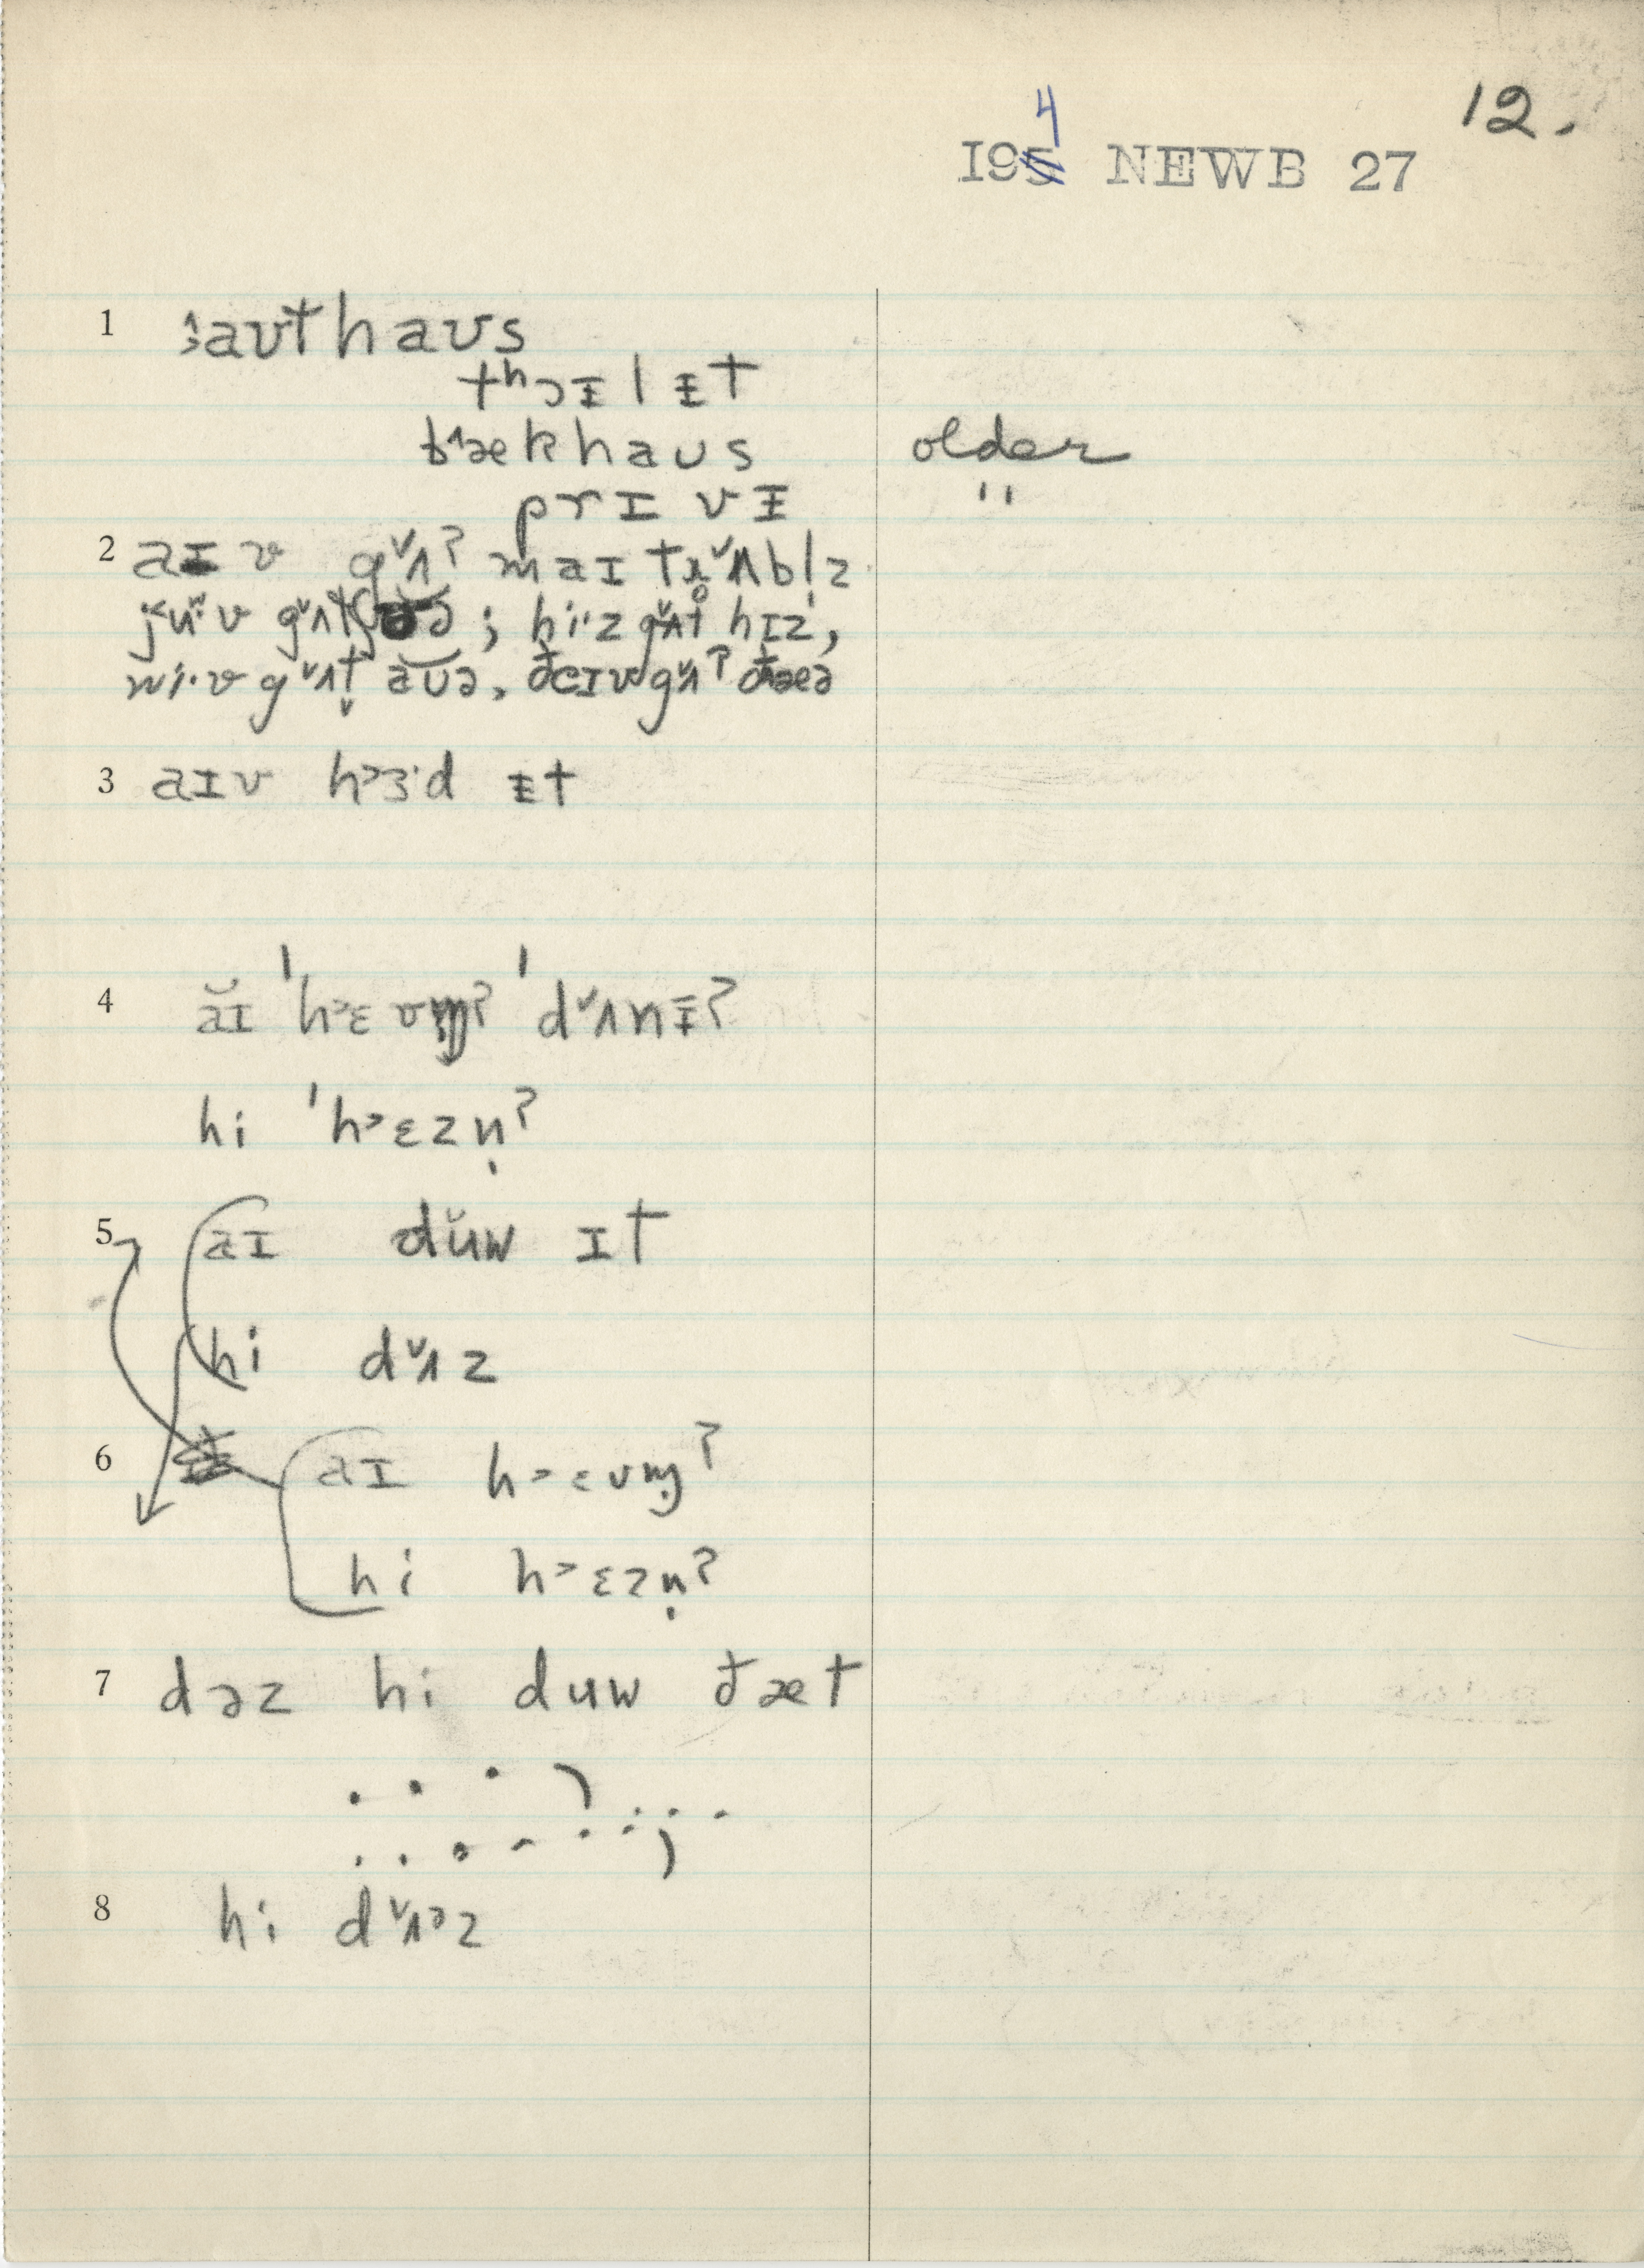 12.
I94 NEWB 27
1 ɜaʊthaʊs
tʰɔɪlɪ̵t
bˆækhaʊs older
prɪvɪ̵ "
2 aɪv gˇʌʔ maɪ trˇ̥ʌbl̩z
jˇuːv gˇʌtʃə; hiˑz gˇʌt hɪz,
wiˑv gˇʌt̬ aʊ̆ə, ðeɪv gˇʌʔ ðæə
3 aɪv h˃ɜˑd ɪ̵t
4 ăɪ ˈh˃ɛvm̩ʔ ˈdˇʌnɪ̵ʔ
hi ˈh˃ɛzn̩ʔ
5 aɪ dˇuw ɪt
hi dˇʌz
6 aɪ h˃ɛvm̩ʔ
hi h˃ɛzn̩ʔ
7 dəz hi duw ðæt
8 hi dˇʌ˃z